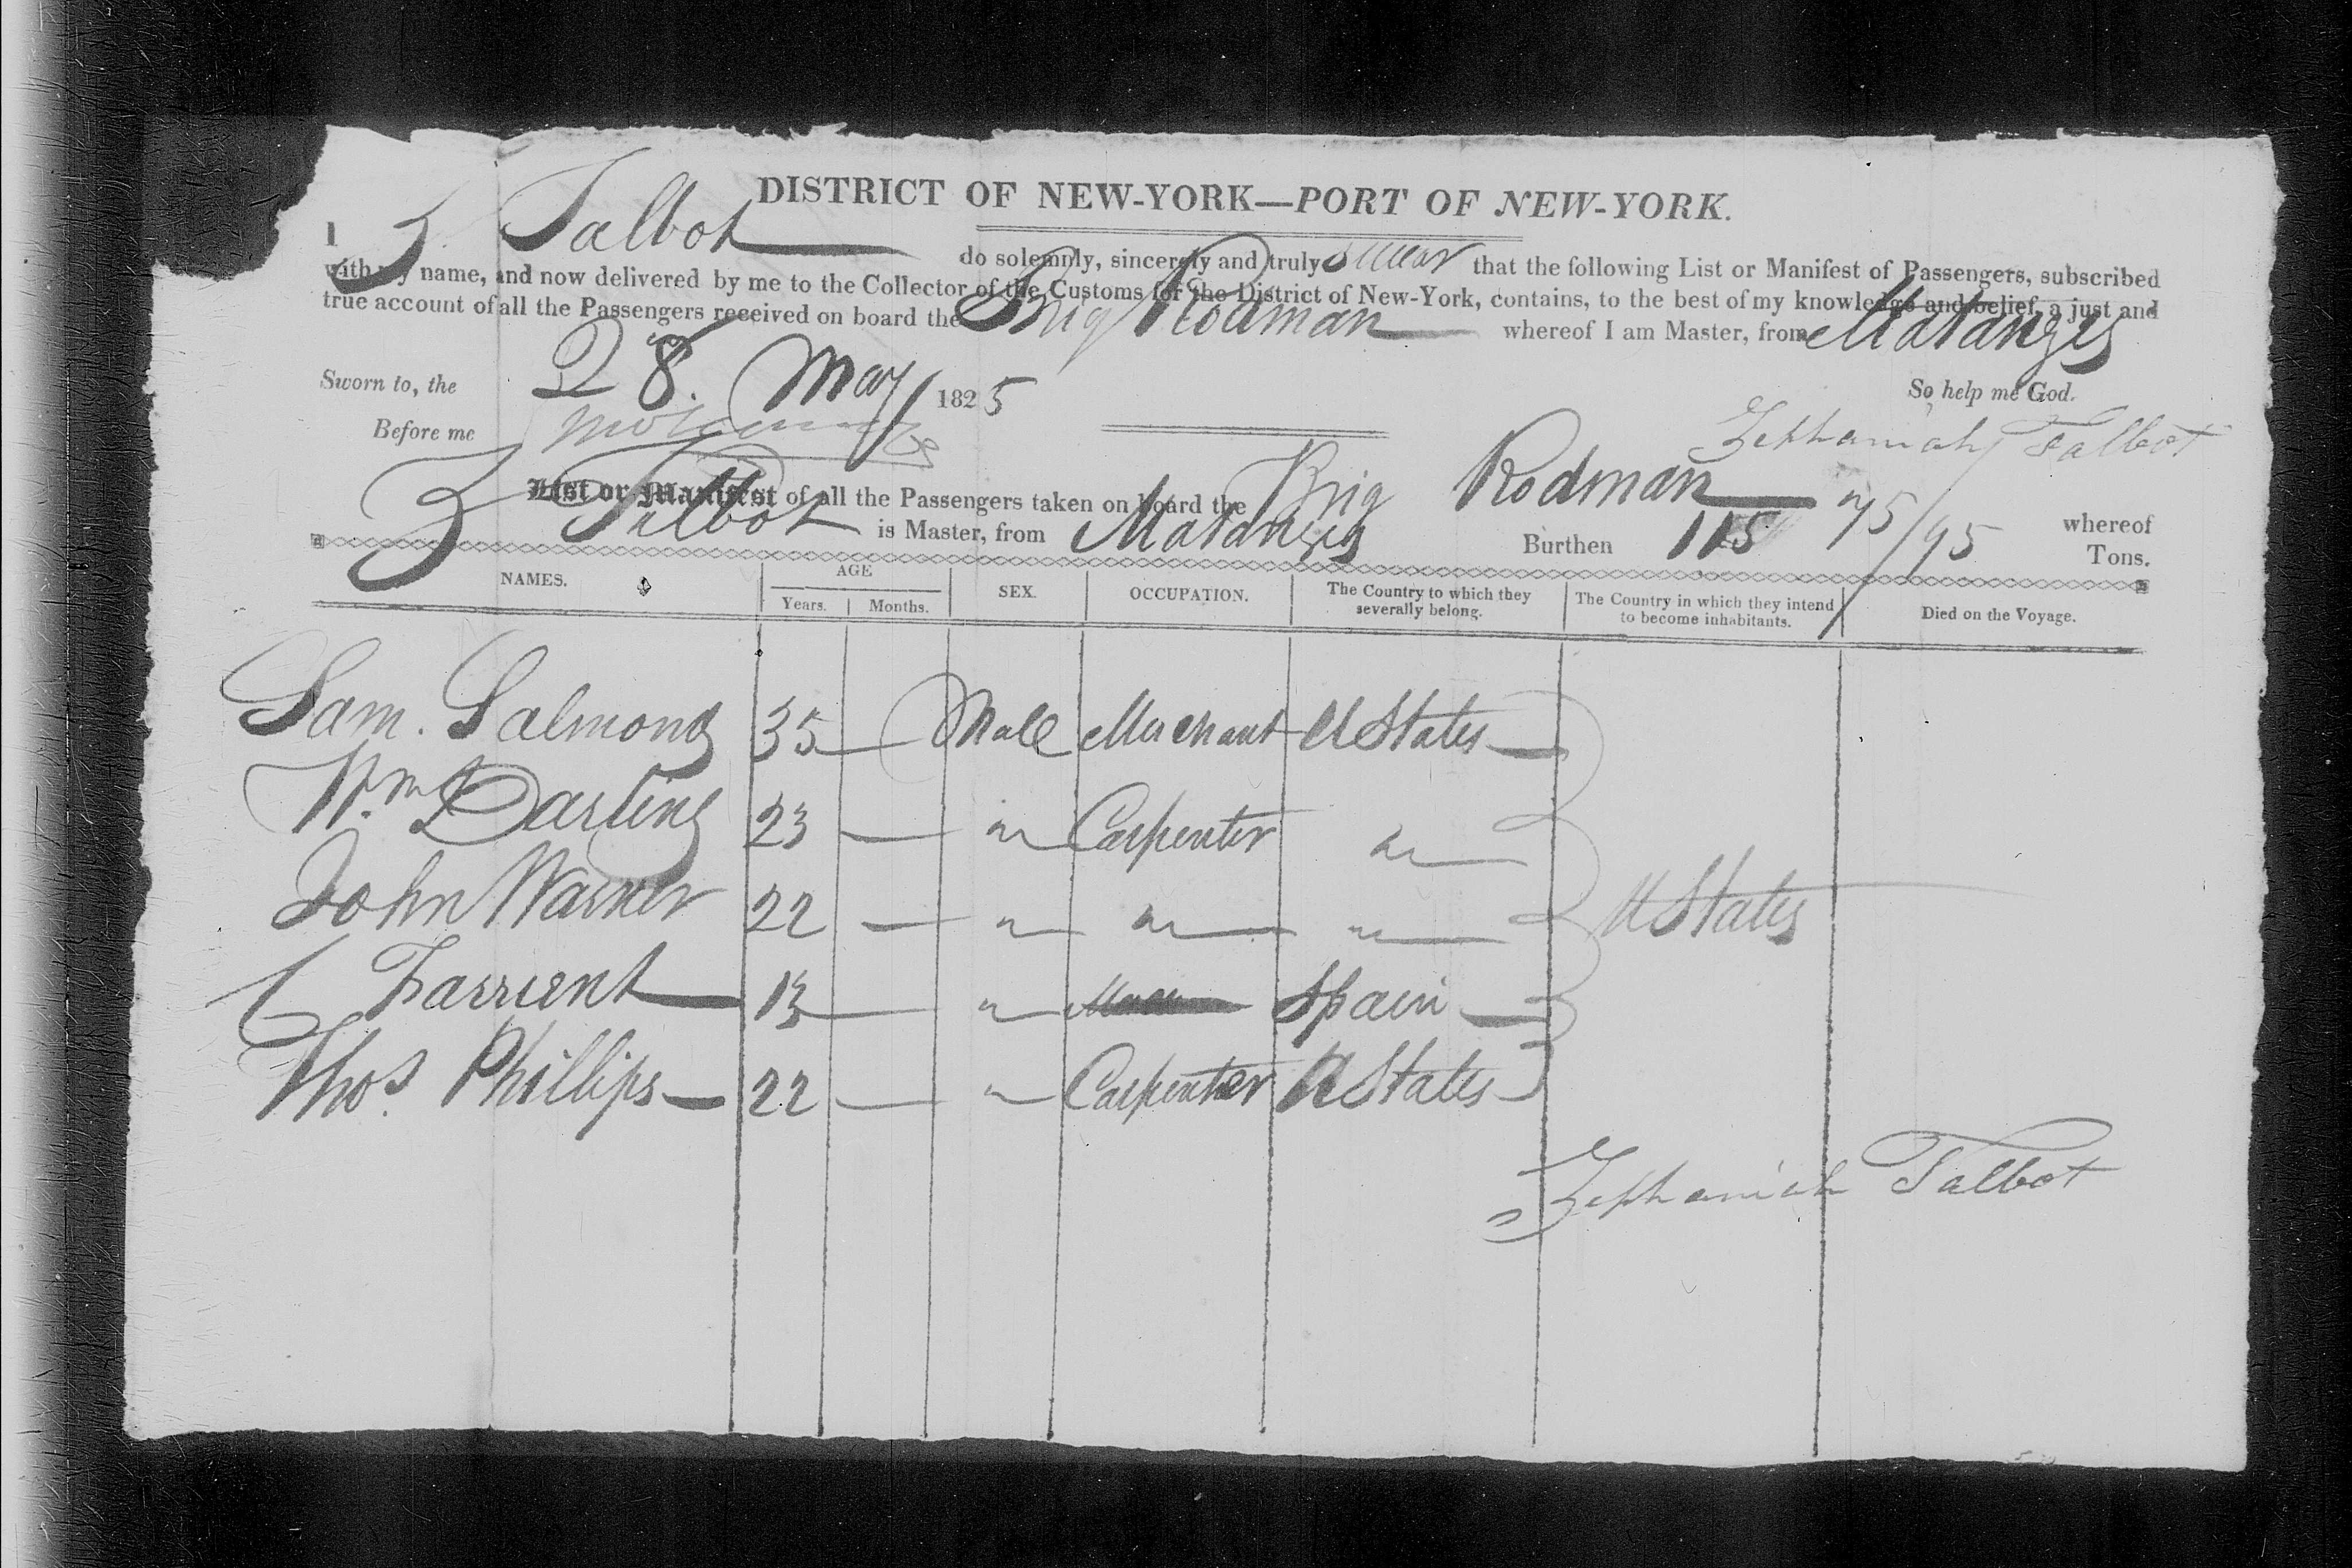 DISTRICT OF NEW-YORK—PORT OF NEW-YORK.
I Z. Talbot do solemnly, sincerely and truly swear that the following List or Manifest of Passengers, subscribed
with my name, and now delivered by me to the Collector of the Customs for the District of New-York, contains, to the best of my knowledge and belief, a just and
true account of all the Passengers received on board the Brig Rodman whereof I am Master, from Matanzes
Sworn to, the 28. May 1825 So help me God.
Before me Zephaniah Talbot
List or Manifest of all the Passengers taken on board the Brig Rodman whereof
Z Talbot is Master, from Matanzes Burthen 115 75/95 Tons.
NAMES. AGE SEX. OCCUPATION. The Country to which they severally belong. The Country in which they intend to become inhabitants. Died on the Voyage.
Years. Months.
Sam. Salmond 35 — Male Merchant U States —
Wm Darling 23 — " Carpenter "
John Warner 22 — " " " U States
C 13 — " Spain —
Thos. Phillips — 22 — " Carpenter U States
Zephaniah Talbot